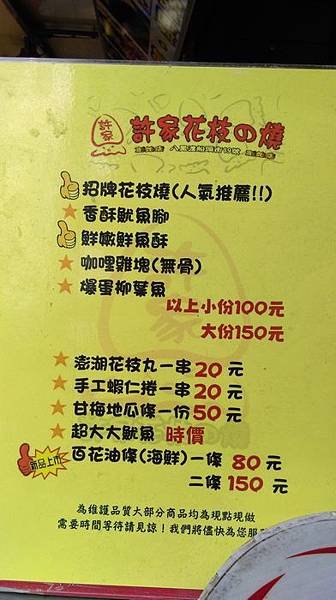 許家
許家花枝の燒
招牌花枝燒(人氣推薦!!)
香酥魷魚腳
鮮嫩鮮魚酥
咖哩雞塊(無骨)
爆蛋柳葉魚
以上小份100元
大份150元
澎湖花枝丸一串20元
手工蝦仁捲一串20元
甘梅地瓜條一份50元
超大大魷魚 時價
新品上市
百花油條(海鮮)一條 80元
二條 150 元
為維護品質大部分商品均為現點現做
需要時間等待請見諒!我們將儘快為您服